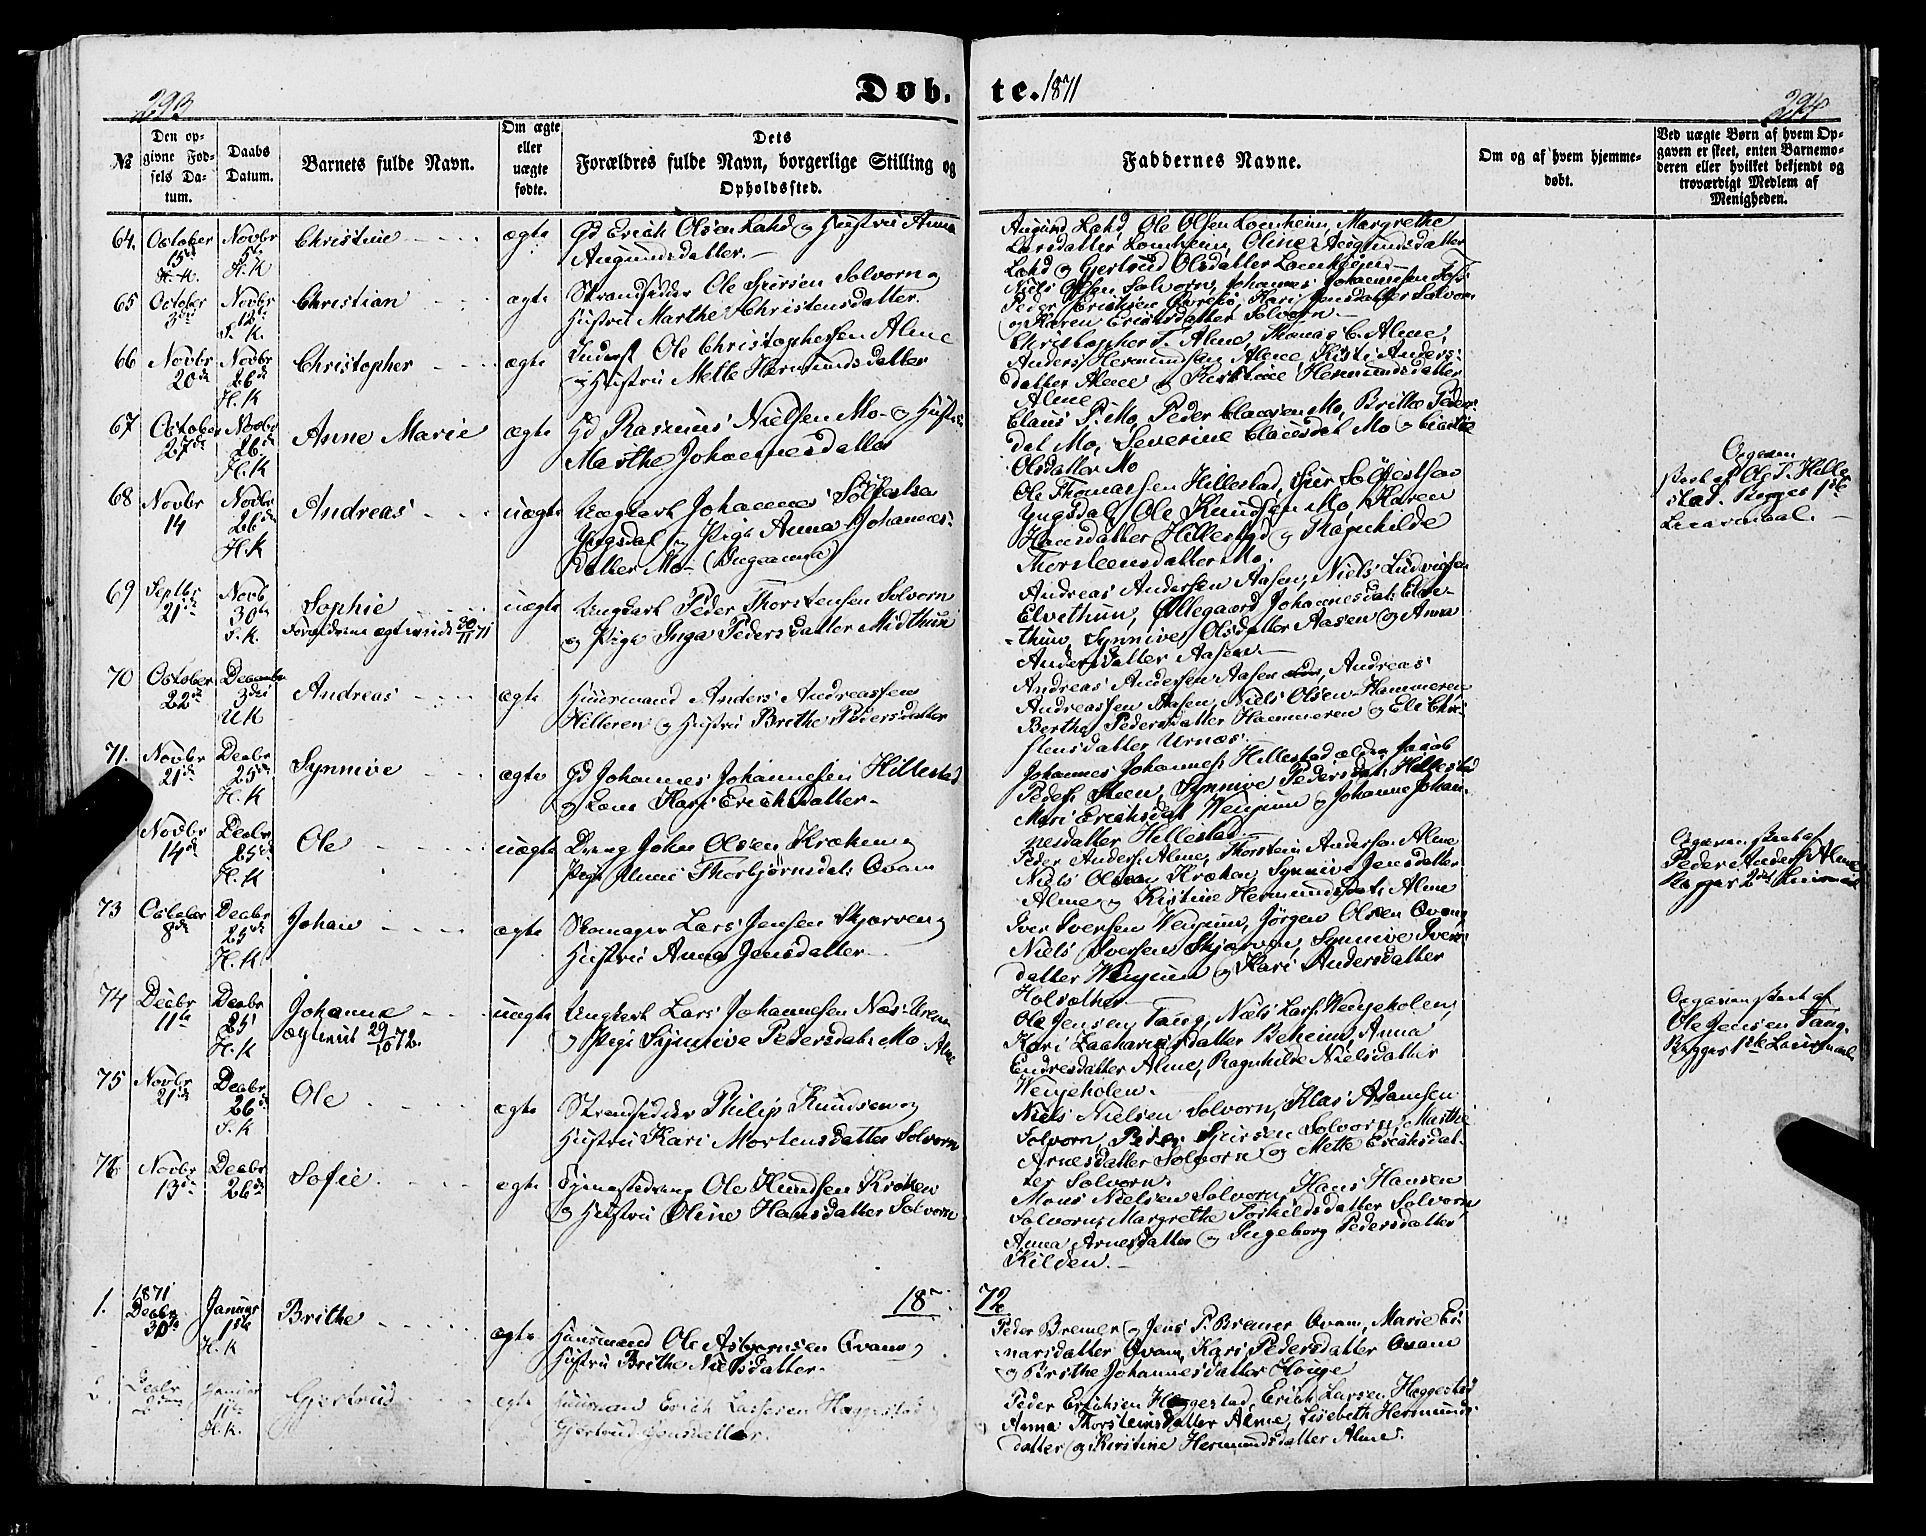 293
Døb-
te. 1871
294
№
Den op-
givne Fød-
sels Da-
tum.
Daabs
Datum.
Barnets fulde Navn.
Om ægte
eller
uægte
fødte.
Dets
Forældres fulde Navn, borgerlige Stilling og
Opholdssted.
Faddernes Navne.
Om og af hvem hjemme-
døbt.
Ved uægte Børn af hvem Op-
gaven er skeet, enten Barnemo-
deren eller hvilket bekjendt og
troværdigt Medlem af
Menigheden.
64. October 15de Novbr 5te H.K Christine ægte
Gd Erich Olsen Lahd og Hustru Anna
Augundsdatter.
Augund Lahd, Ole Olsen Loenheim, Margrethe
Larsdatter Loenheim, Oline Augundsdatter
Lahd og Gjertrud Olsdatter
65 October 3die Novbr 12te S.K. Christian ægte
Strandsidder Ole Sjursen Solvorn og
Hustru Marthe Christensdatter.
Niels Olsen Solvorn, Johannes Johannessen
Peder Erichsen Kari Jensdatter Solvorn
og Karen Erichsdatter Solvorn.
66 Novbr 20de Novbr 26de H.K Christopher ægte
Inderst Ole Christophersen Alme
og Hustru Mette Hermundsdatter
Christopher T. Alme, Thomas C. Alme,
Anders Hermundsen Alme, Kisti Anders-
datter Alme og Kirstine Hermundsdatter
Alme
67 October 27de Novbr 26de H.K Anne Marie ægte
Gd Rasmus Nielsen Mo og Hustru
Marthe Johannesdatter
Claus P. Mo, Peder Clausen Mo, Brithe Peders-
dat Mo, Severine Clausdat Mo og
Olsdatter Mo
68 Novbr 14 Novbr 26de H.K Andreas uægte
Ungkarl Johannes Sølfestsen
Yngsdal og Pige Anna Johannes-
datter Mo
Ole Thomassen Hillestad, Sjur Sølfestsen
Yngsdal, Ole Knudsen Mo, Karen
Hansdatter Hillestad og Ragnhilde
Thorsteensdatter Mo.
Opgaven
skeet af Ole T. Hille
stad. Begges 1ste
Leiermaal.
69 Septbr 21de Novb 30te S.K. Sophie uægte
Forældrene ægteviede 30/11 71
Ungkarl Peder Thorstensen Solvorn
og Pige Inga Pedersdatter Midthun
Andreas Andersen Aasen, Niels Ludvigsen
Elvethun, Ollegaard Johannesdat. Elve-
thun, Synnive Olsdatter Aasen og Anna
Andersdatter Aasen
70 October 22de December 3die U.K Andreas ægte
Huusmand Anders Andreassen
Hilleren og Hustru Brithe Pedersdatter
Andreas Andersen Aasen Andreas
Andreassen Aasen, Niels Olsen Hammeren
Berthe Pedersdatter Hammeren og Eli Chri-
stensdatter Urnæs
71. Novbr 21de Decbr 25de H.K Synnive ægte
Gd Johannes Johannesen Hillestad
og Kone Kari Erichsdatter
Johannes Johannes. Hillestad ældre, Jacob
Peders. Steen, Synnive Pedersdat. Hillestad
Mari Erichsdat Venjum og Johanne Johan-
nesdatter Hillestad
Novbr 14de Decbr 25de H.K Ole uægte
Dreng John Olsen Kroken og
Pige Anne Thorbjørnsdat. Ovam
Peder Anders. Alme, Thorstein Andersen Alme
Niels Olsen Kroken, Synnive Jensdatter
Alme og Kirstine Hermundsdat. Alme
Opgaven skeet af
Peder Anders. Alme
Begges 2det Leiermaal
73 October 8de Decbr 25 H.K Johan ægte
Skomager Lars Jensen Skjerven og
Hustru Anna Jensdatter
Iver Iversen Venjum, Jørgen Olsen Ovam,
Niels Iversen Skjerven, Synnive Ivers-
datter Venjum og Kari Andersdatter
Holsether
74 Decbr 11te Decbr 25 H.K Johanne uægte
Ægteviet 29/10 72.
Ungkarl Lars Johannesen Næs-
og Pige Synnive Pedersdat. Mo- Alme
Ole Jensen Tang, Niels Lars. Venjeholen,
Kari Zachariasdatter Beheim, Anna
Endresdatter Alme, Ragnhilde Nielsdatter
Venjeholen.
Opgaven skeet af
Ole Jensen Tang.
Begges 1ste Leiermaal
75 Novbr 21de Decbr 26de S.K Ole ægte
Strandsidder Philip Knudsen og
Hustru Kari Mortensdatter Solvorn
Niels Nielsen Solvorn, Klas Adamsen
Solvorn, Peder Sjursen Solvorn, Marthe
Arnesdatter Solvorn og Mette Erichsdat-
ter Solvorn.
76 Novbr 13de Decbr 26de Sofie ægte
Tjenestedreng Ole Knudsen Kroken
og Hustru Oline Hansdatter Solvorn
Mons Nielsen Solvorn, Hans Hansen
Solvorn, Margrethe Torkildsdatter Solvorn
Anna Arnesdatter og Ingeborg Pedersdatter
Kilden.
1872
1. 1871 Decbr 30te Januar 1ste H.K Brithe ægte
Huusmand Ole Asbjørnsen Ovam og
Hustru Brithe Nielsdatter
Peder Bremer og Jens P. Bremer Ovam, Marie Ei-
narsdatter Ovam, Kari Pedersdatter Ovam
og Brithe Johannesdatter Houge
2. Decbr Januar H.K. Gjertrud ægte
Huusmand Erich Larsen Heggestad
Gjertrud Jensdatter.
Peder Erichsen Heggestad, Erich Larsen Heggestad
Anna Thorsteinsdatter Alme, Lisebeth Hermunds-
datter og Kirstine Hermundsdatter Alme.